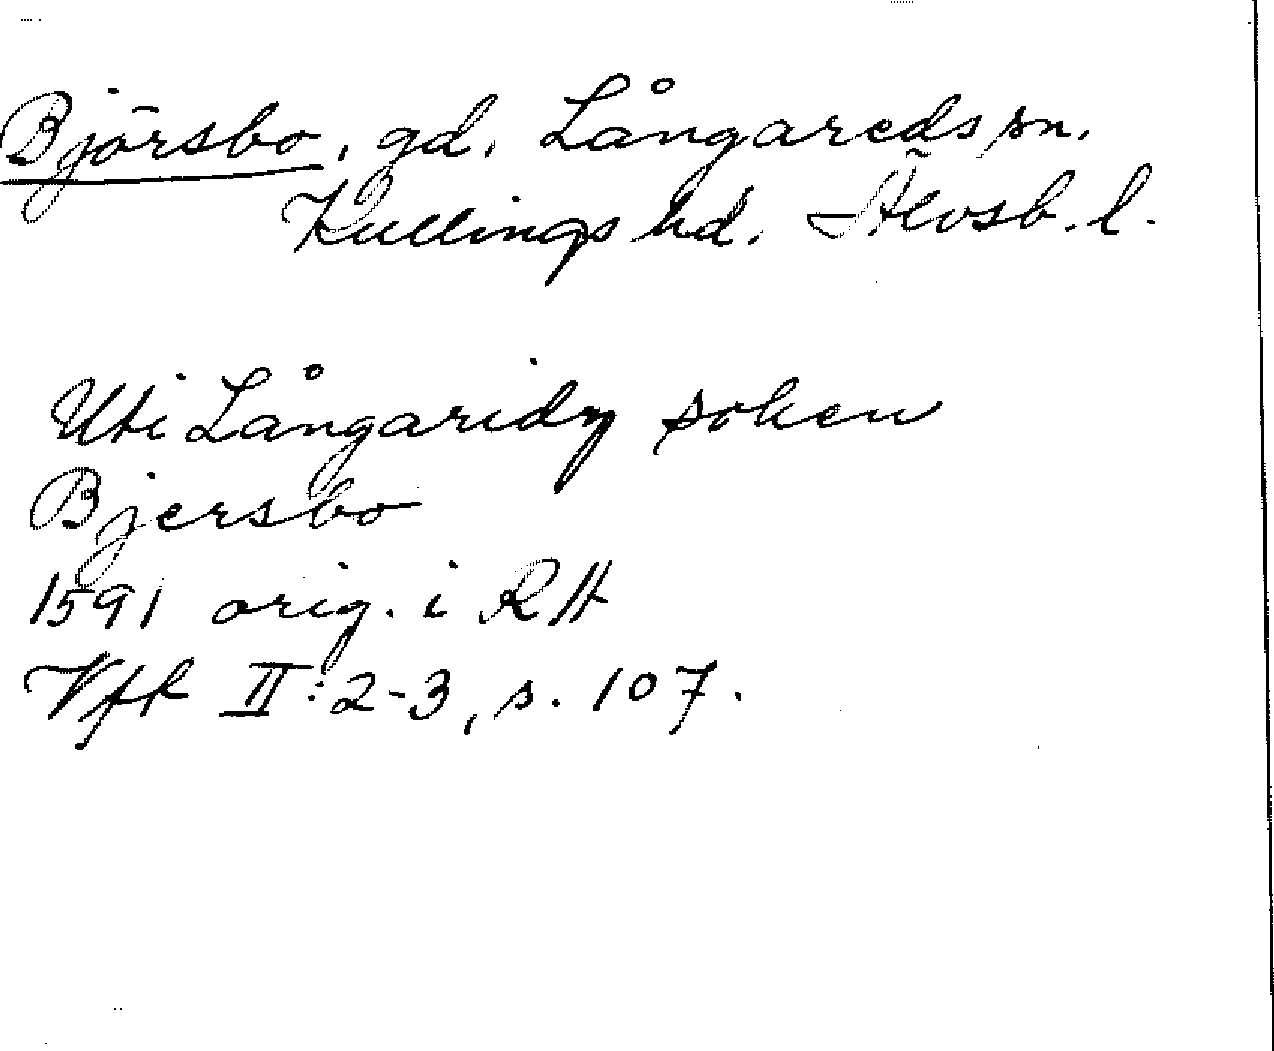 Björsbo, gd, Långareds sn.
Kullings hd. Älvsb. l.
Uti Långaridz soken
Bjersbo
1591 orig. i RA
VfR II:2-3, s. 107.